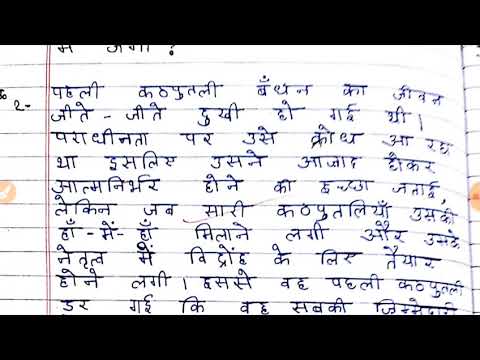 में जगी ?
2- पहली कठपुतली बँधन का जीवन
जीते - जीते दुखी हो गई थी।
पराधीनता पर उसे क्रोध आ रहा
था इसलिए उसने आजाद होकर
आत्मनिर्भर होने की इच्छा जताई,
लेकिन जब सारी कठपुतलियाँ उसकी
हाँ - में - हाँ मिलाने लगी और उसके
नेतृत्व में विद्रोंह के लिए तैयार
होने लगी। इससे वह पहली कठपुतली
डर गई कि वह सबकी जिम्मेदारी